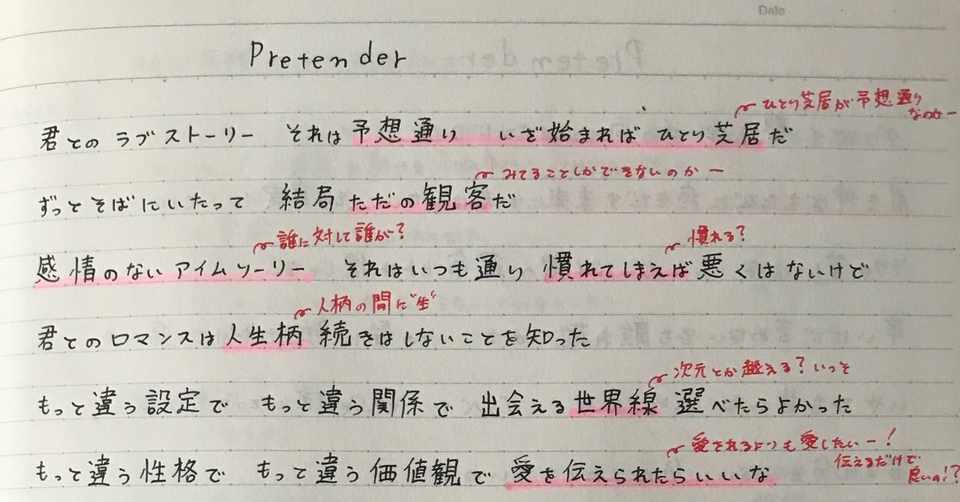 Date
Pretender
ひとり芝居が予想通り
なのかー
君とのラブストーリー それは予想通り いざ始まればひとり芝居だ
みてることしかできないのかー
ずっとそばにいたって 結局ただの観客だ
誰に対して誰が? 慣れる?
感情のないアイムソーリー それはいつも通り 慣れてしまえば悪くはないけど
人柄の間に"生"
君とのロマンスは人生柄 続きはしないことを知った
次元とか越える?いっそ
もっと違う設定で もっと違う関係で 出会える世界線 選べたらよかった
愛されるよりも愛したいー!
伝えるだけで
良いの!?
もっと違う性格で もっと違う価値観で 愛を伝えられたらいいな